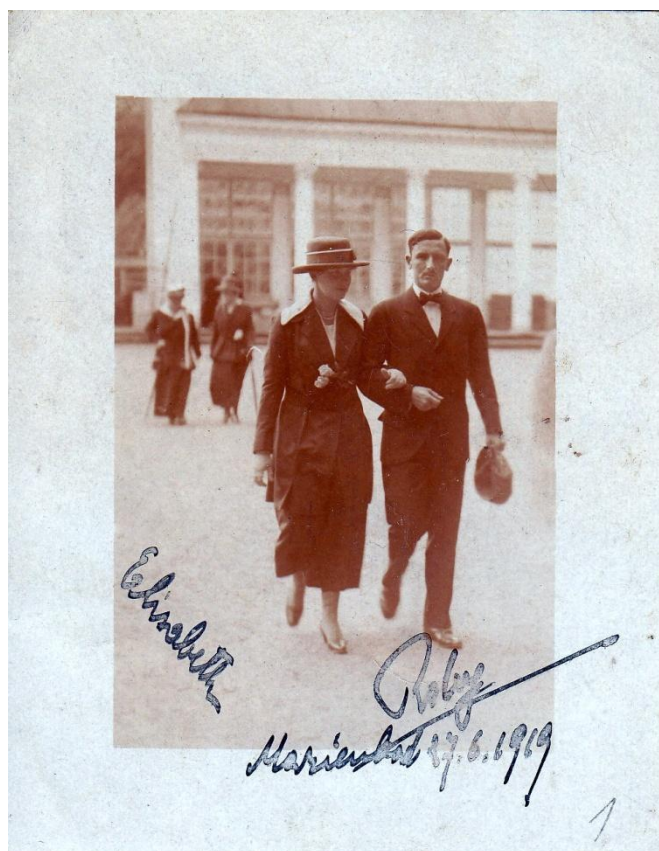 Elisabeth
Roby
Marienbad 17.6.1919
1